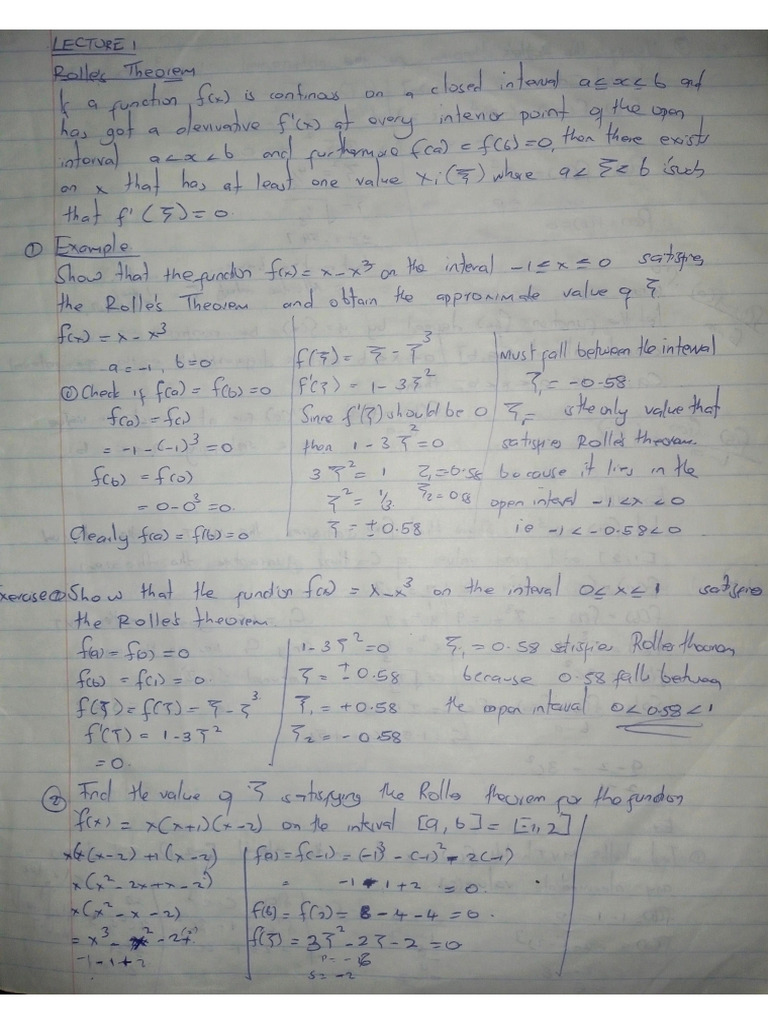 LECTURE 1
Rolle's Theorem
If a function f(x) is continous on a closed interval a ≤ x ≤ b and
has got a derivative f'(x) at every interior point of the open
interval a < x < b and furthermore f(a) = f(b) = 0, then there exists
an x that has at least one value xi (ξ) where a < ξ < b such
that f'(ξ) = 0.
① Example
Show that the function f(x) = x - x³ on the interval -1 ≤ x ≤ 0 satisfies
the Rolle's Theorem and obtain the approximate value of ξ
f(x) = x - x³
a = -1, b = 0
① Check if f(a) = f(b) = 0
f(a) = f(-1)
= -1 - (-1)³ = 0
f(b) = f(0)
= 0 - 0³ = 0.
Clearly f(a) = f(b) = 0
f(ξ) = ξ - ξ³
f'(ξ) = 1 - 3ξ²
Since f'(ξ) should be 0
then 1 - 3ξ² = 0
3ξ² = 1 ξ₁ = 0.58
ξ² = 1/3 ξ₂ = 0.58
ξ = ± 0.58
Must fall between the interval
ξ₁ = -0.58
ξ₁ = is the only value that
satisfies Rolle's theorem.
because it lies in the
open interval -1 < x < 0
ie -1 < -0.58 < 0
Exercise ① Show that the function f(x) = x - x³ on the interval 0 ≤ x ≤ 1 satisfies
the Rolle's theorem.
f(a) = f(0) = 0
f(b) = f(1) = 0.
f(ξ) = f(ξ) = ξ - ξ³.
f'(ξ) = 1 - 3ξ²
= 0.
1 - 3ξ² = 0
ξ = ± 0.58
ξ₁ = +0.58
ξ₂ = -0.58
ξ₁ = 0.58 satisfies Rolles theorem
because 0.58 falls between
the open interval 0 < 0.58 < 1
② Find the value of ξ satisfying the Rolles theorem for the function
f(x) = x(x+1)(x-2) on the interval [a, b] = [-1, 2]
x(x(x-2) + 1(x-2)
x(x² - 2x + x - 2)
x(x² - x - 2)
= x³ - x² - 2x
-1 - 1 + 2
f(a) = f(-1) = (-1)³ - (-1)² - 2(-1)
= -1 - 1 + 2 = 0.
f(b) = f(2) = 8 - 4 - 4 = 0.
f(ξ) = 3ξ² - 2ξ - 2 = 0
P = -6
S = -2